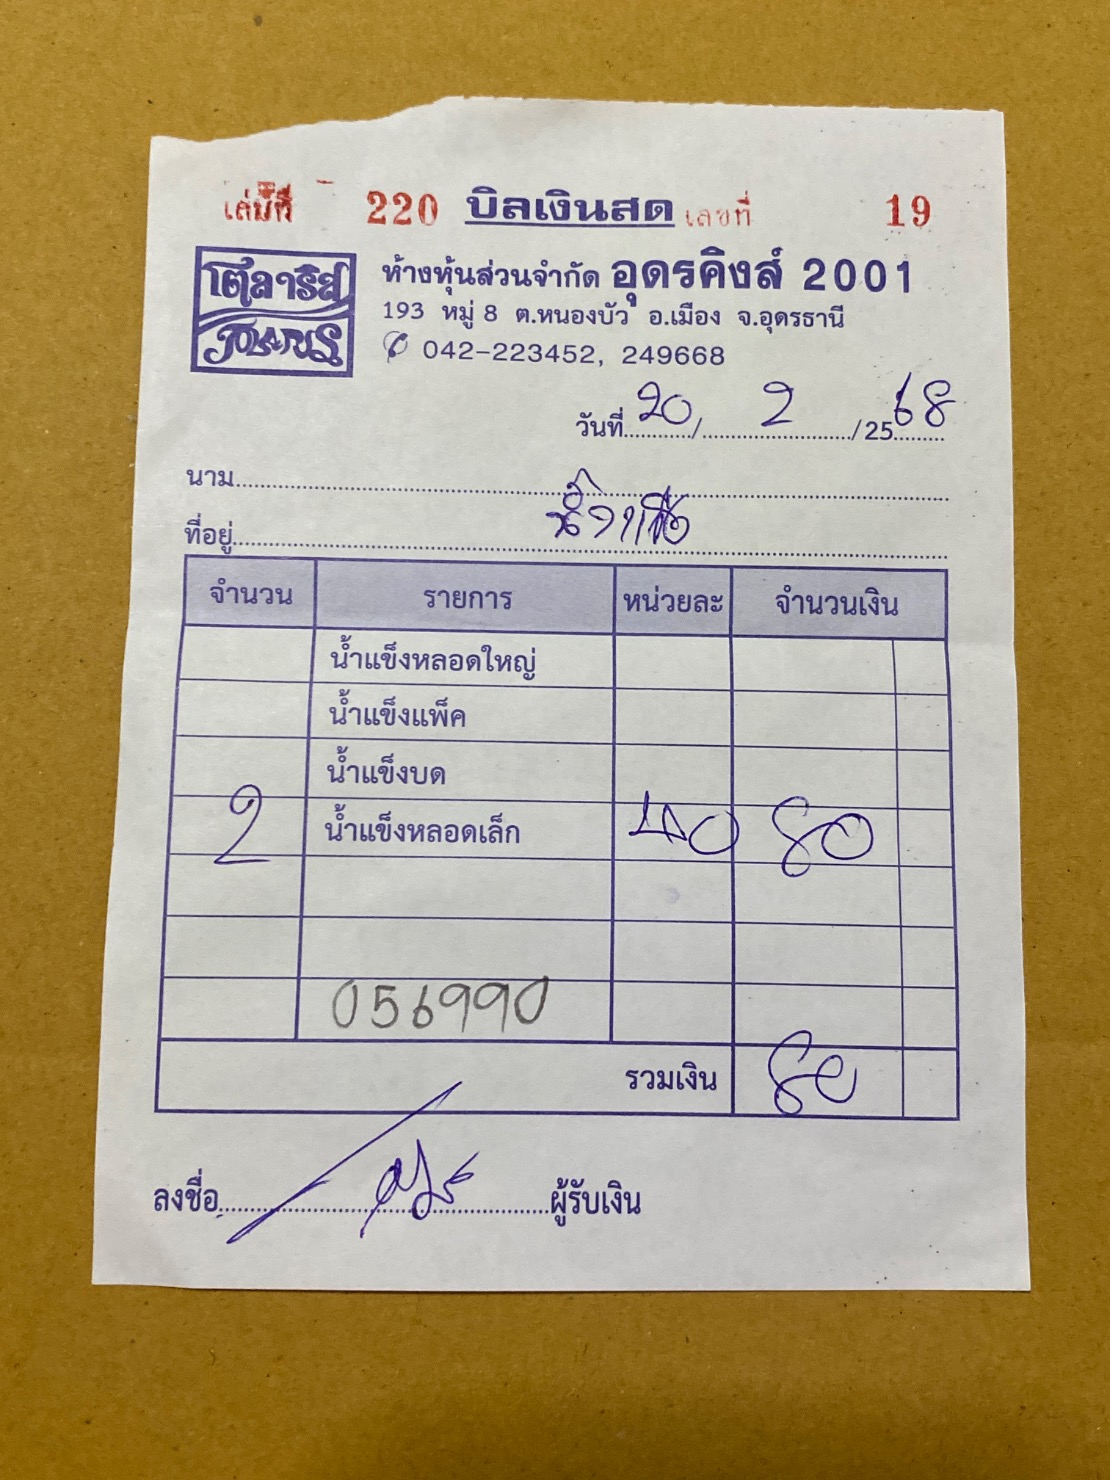 เล่มที่ 220 บิลเงินสด เลขที่ 19
โตลาริส
ห้างหุ้นส่วนจำกัด อุดรคิงส์ 2001
193 หมู่ 8 ต.หนองบัว อ.เมือง จ.อุดรธานี
042-223452, 249668
วันที่ 20 / 2 / 2568
นาม
ที่อยู่
จำนวน รายการ หน่วยละ จำนวนเงิน
น้ำแข็งหลอดใหญ่
น้ำแข็งแพ็ค
น้ำแข็งบด
2 น้ำแข็งหลอดเล็ก 40 80
056990
รวมเงิน 80
ลงชื่อ ผู้รับเงิน